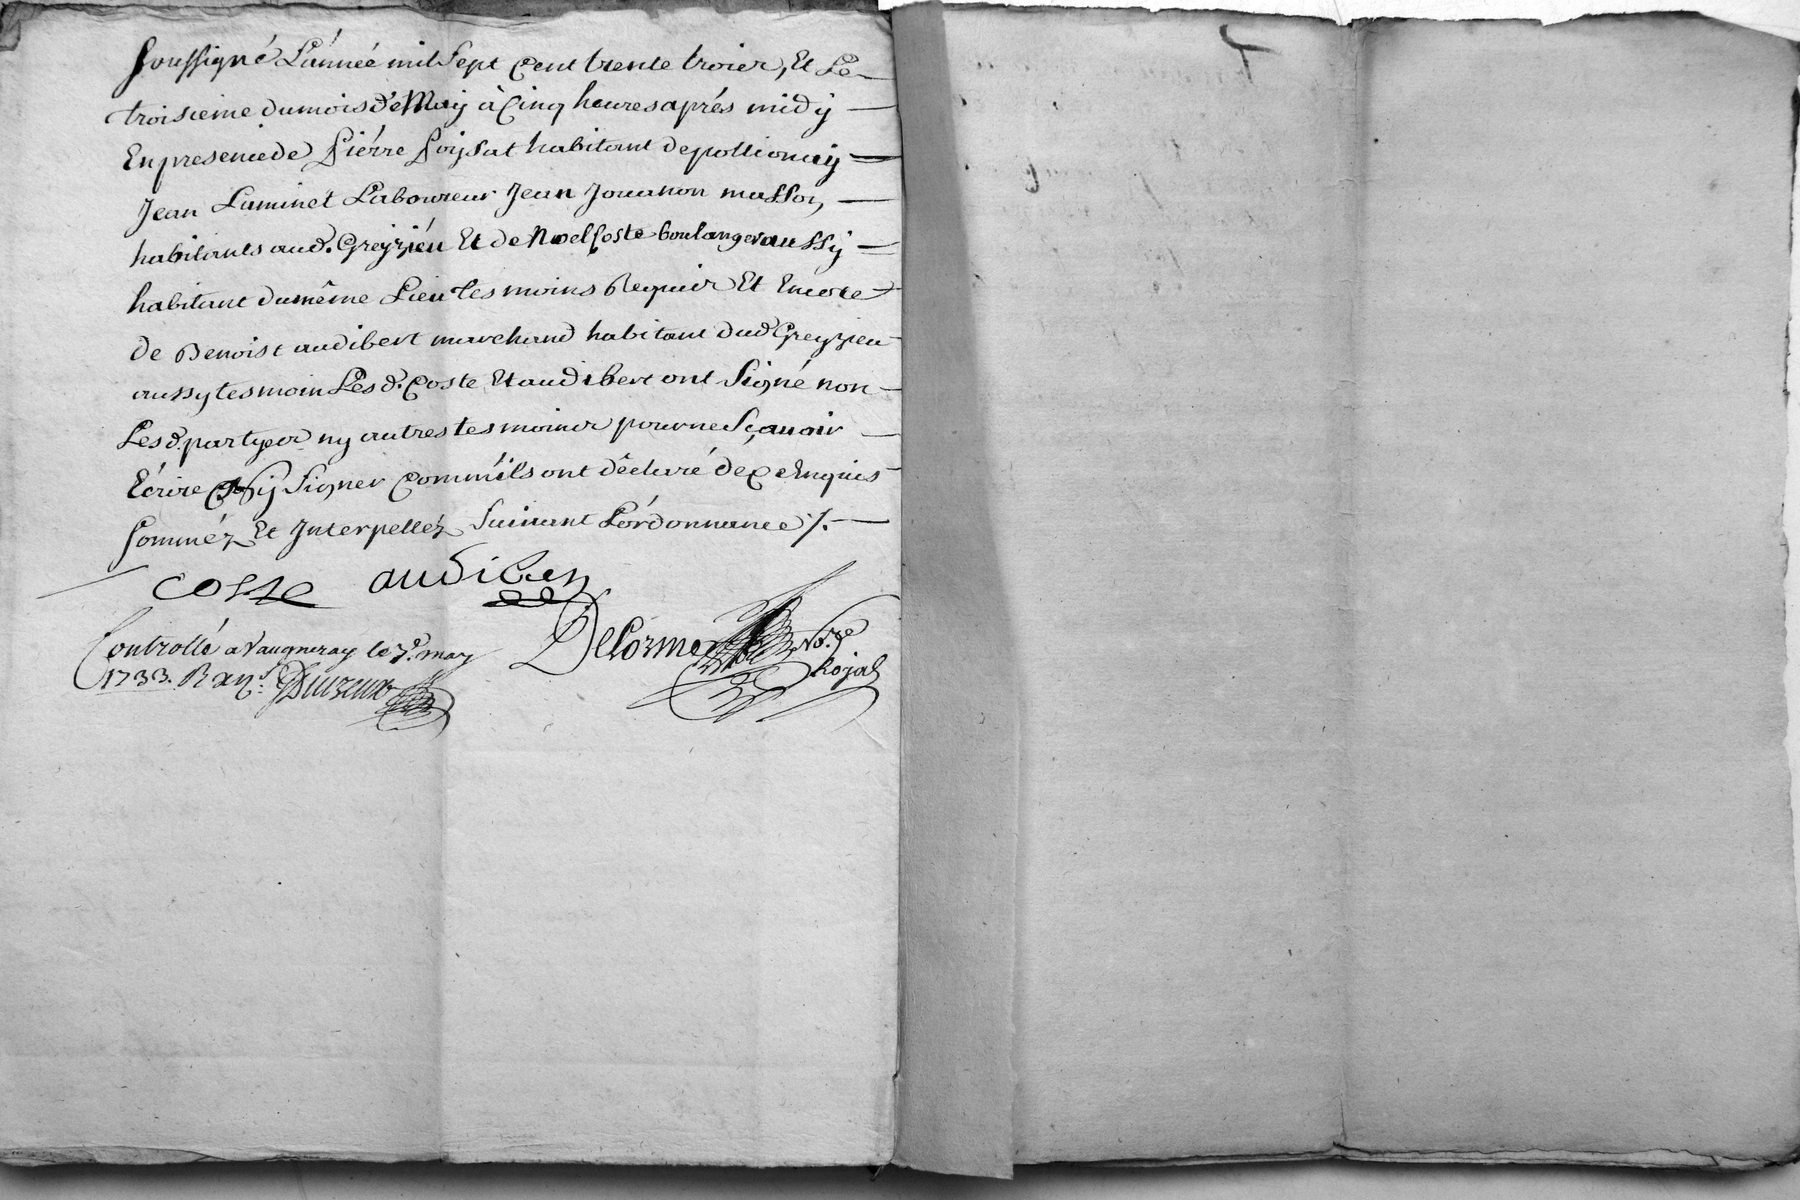 soussigné L'année mil sept cent trente troies, Et Le
troisieme du mois de May à Cinq heures aprés midy
En presence de Piérre Poysat habitant de pollionay
Jean Luminet Laboureur Jean Jouanon masson,
habitants aud. Greyziéu Et de Noel Coste boulanger aussy
habitant du même Lieu tesmoins Requis Et Encore
de Benoist audibert marchand habitant dud Greyzieu
aussy tesmoin Les d. Coste Et audibert ont signé non
Les d. partyes ny autres tesmoins pour ne sçauoir
Ecrire Ny signer comm'ils ont déclaré de ce Enquis
sommés Et Interpellés suiuant L'ordonnance ./.
coste audibert
Controllé a Vaugneray le 7e. may
1733. R
Delorme No.re
Royal